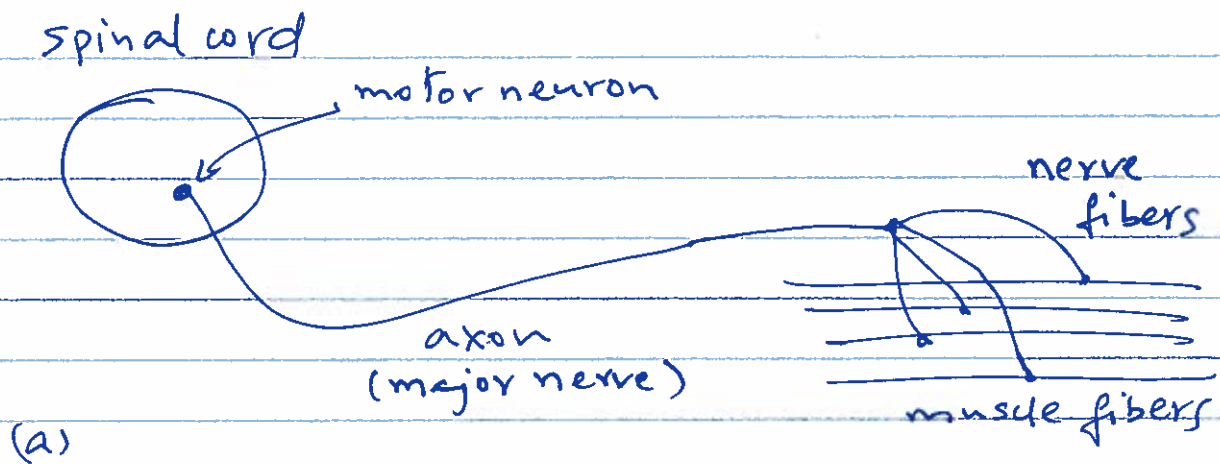 spinal cord
motor neuron
nerve
fibers
axon
(major nerve)
muscle fibers
(a)